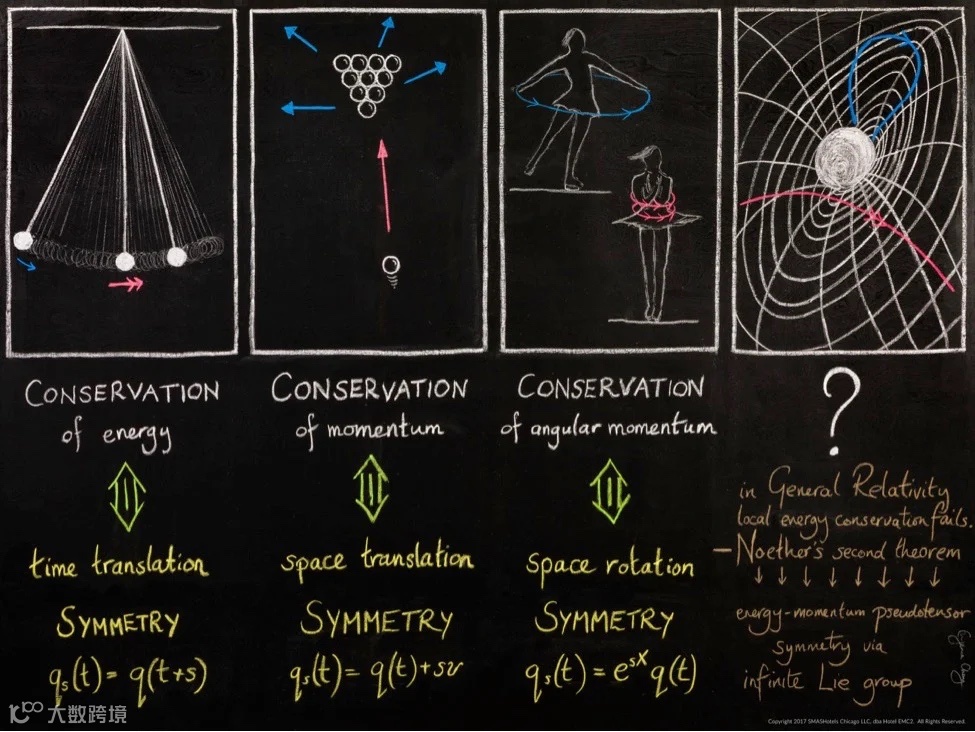 CONSERVATION
of energy
time translation
SYMMETRY
qₛ(t) = q(t+s)
CONSERVATION
of momentum
space translation
SYMMETRY
qₛ(t) = q(t)+sv
CONSERVATION
of angular momentum
space rotation
SYMMETRY
qₛ(t) = eˢˣ q(t)
?
in General Relativity
local energy conservation fails.
– Noether's second theorem
↓ ↓ ↓ ↓ ↓ ↓ ↓
energy-momentum pseudotensor
symmetry via
infinite Lie group
Copyright 2017 SMASHotels Chicago LLC, dba Hotel EMC2. All Rights Reserved.
大数跨境